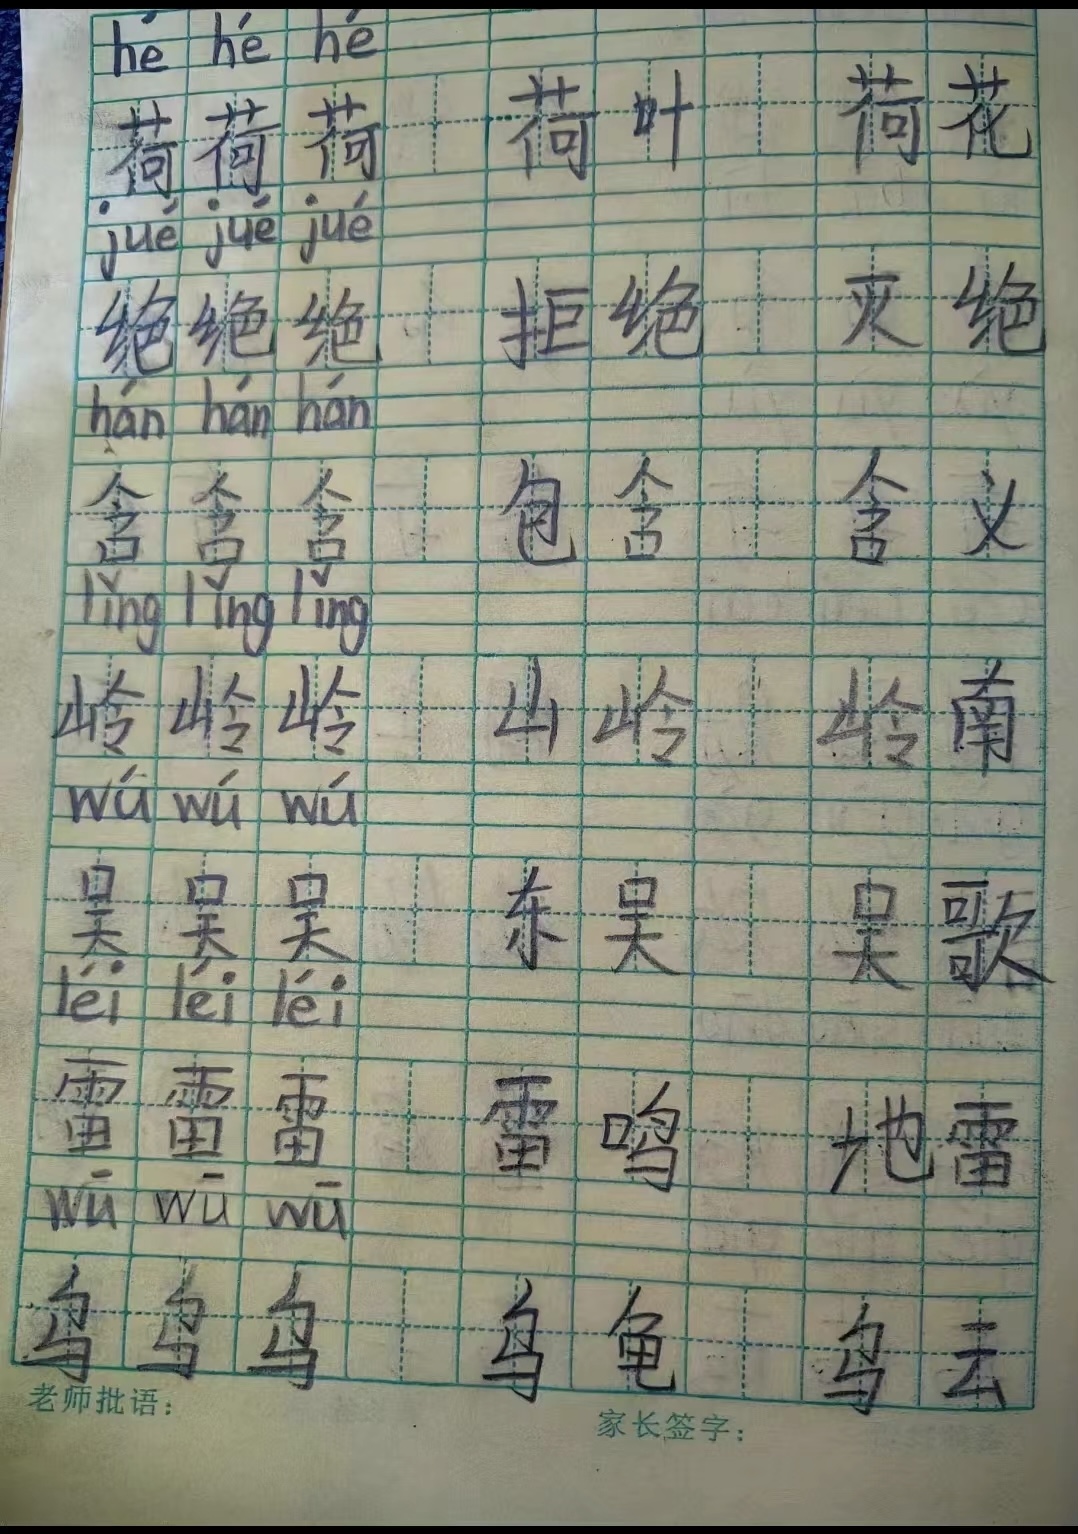 hé hé hé
荷 荷 荷 荷叶 荷花
jué jué jué
绝 绝 绝 拒绝 灭绝
hán hán hán
含 含 含 包含 含义
lǐng lǐng lǐng
岭 岭 岭 山岭 岭南
wú wú wú
吴 吴 吴 东吴 吴歌
léi léi léi
雷 雷 雷 雷鸣 地雷
wū wū wū
乌 乌 乌 乌龟 乌云
老师批语：
家长签字：